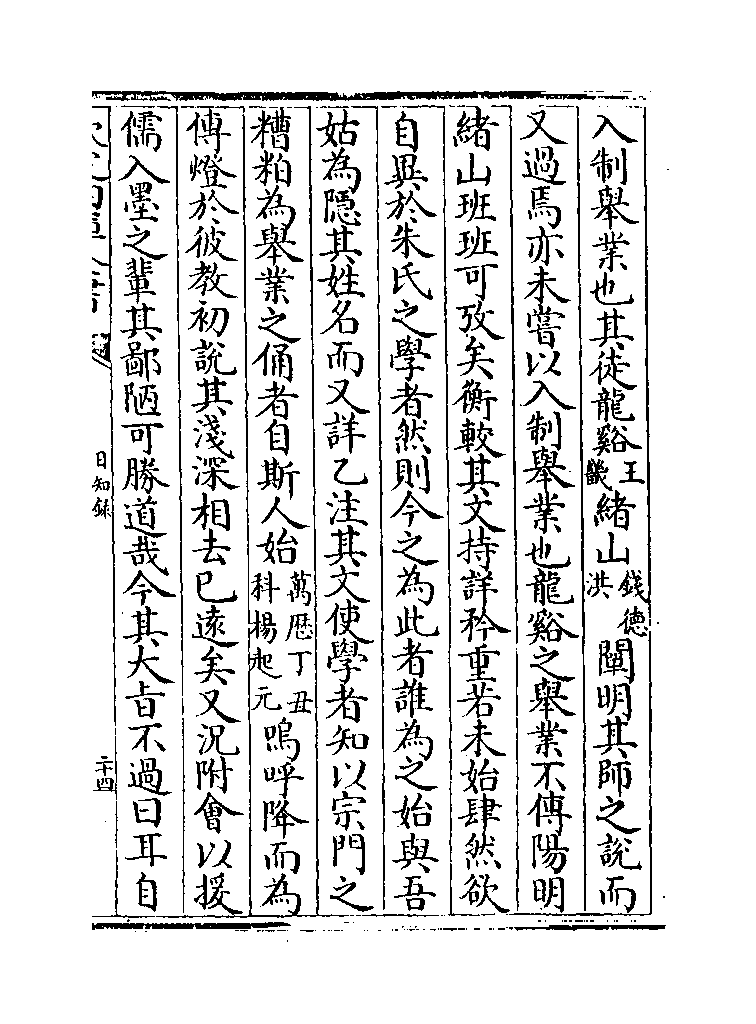 入制舉業也其徒龍谿王畿緒山錢德洪闡明其師之說而
又過焉亦未嘗以入制舉業也龍谿之舉業不傳陽明
緒山班班可攷矣衡較其文持詳矜重若未始肆然欲
自異於朱氏之學者然則今之為此者誰為之始與吾
姑為隱其姓名而又詳乙注其文使學者知以宗門之
糟粕為舉業之俑者自斯人始萬厯丁丑科楊起元嗚呼降而為
傅燈於彼教初說其淺深相去已遠矣又況附會以援
儒入墨之輩其鄙陋可勝道哉今其大㫖不過曰耳自
日知錄
二十四